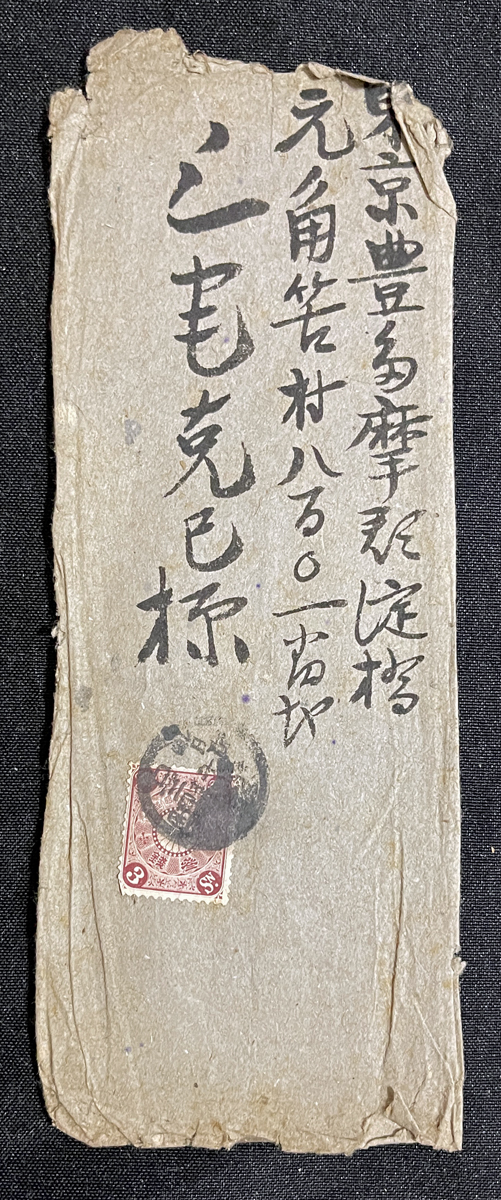 東京豊多摩郡淀橋
元角筈村八百〇一番地
三宅克己様
3